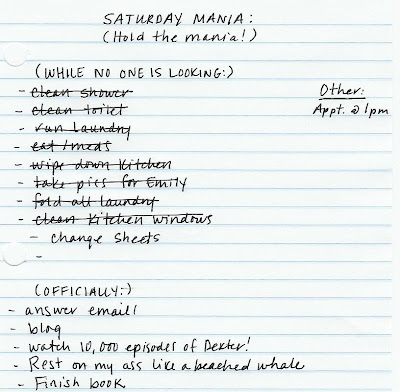 SATURDAY MANIA:
(Hold the mania!)
(WHILE NO ONE IS LOOKING:)
- clean shower
- clean toilet
- run laundry
- eat/meds
- wipe down kitchen
- take pics for Emily
- fold all laundry
- clean kitchen windows
- change sheets
-
Other:
Appt. @ 1pm
(OFFICIALLY:)
- answer email!
- blog
- watch 10,000 episodes of Dexter!
- Rest on my ass like a beached whale
- Finish book